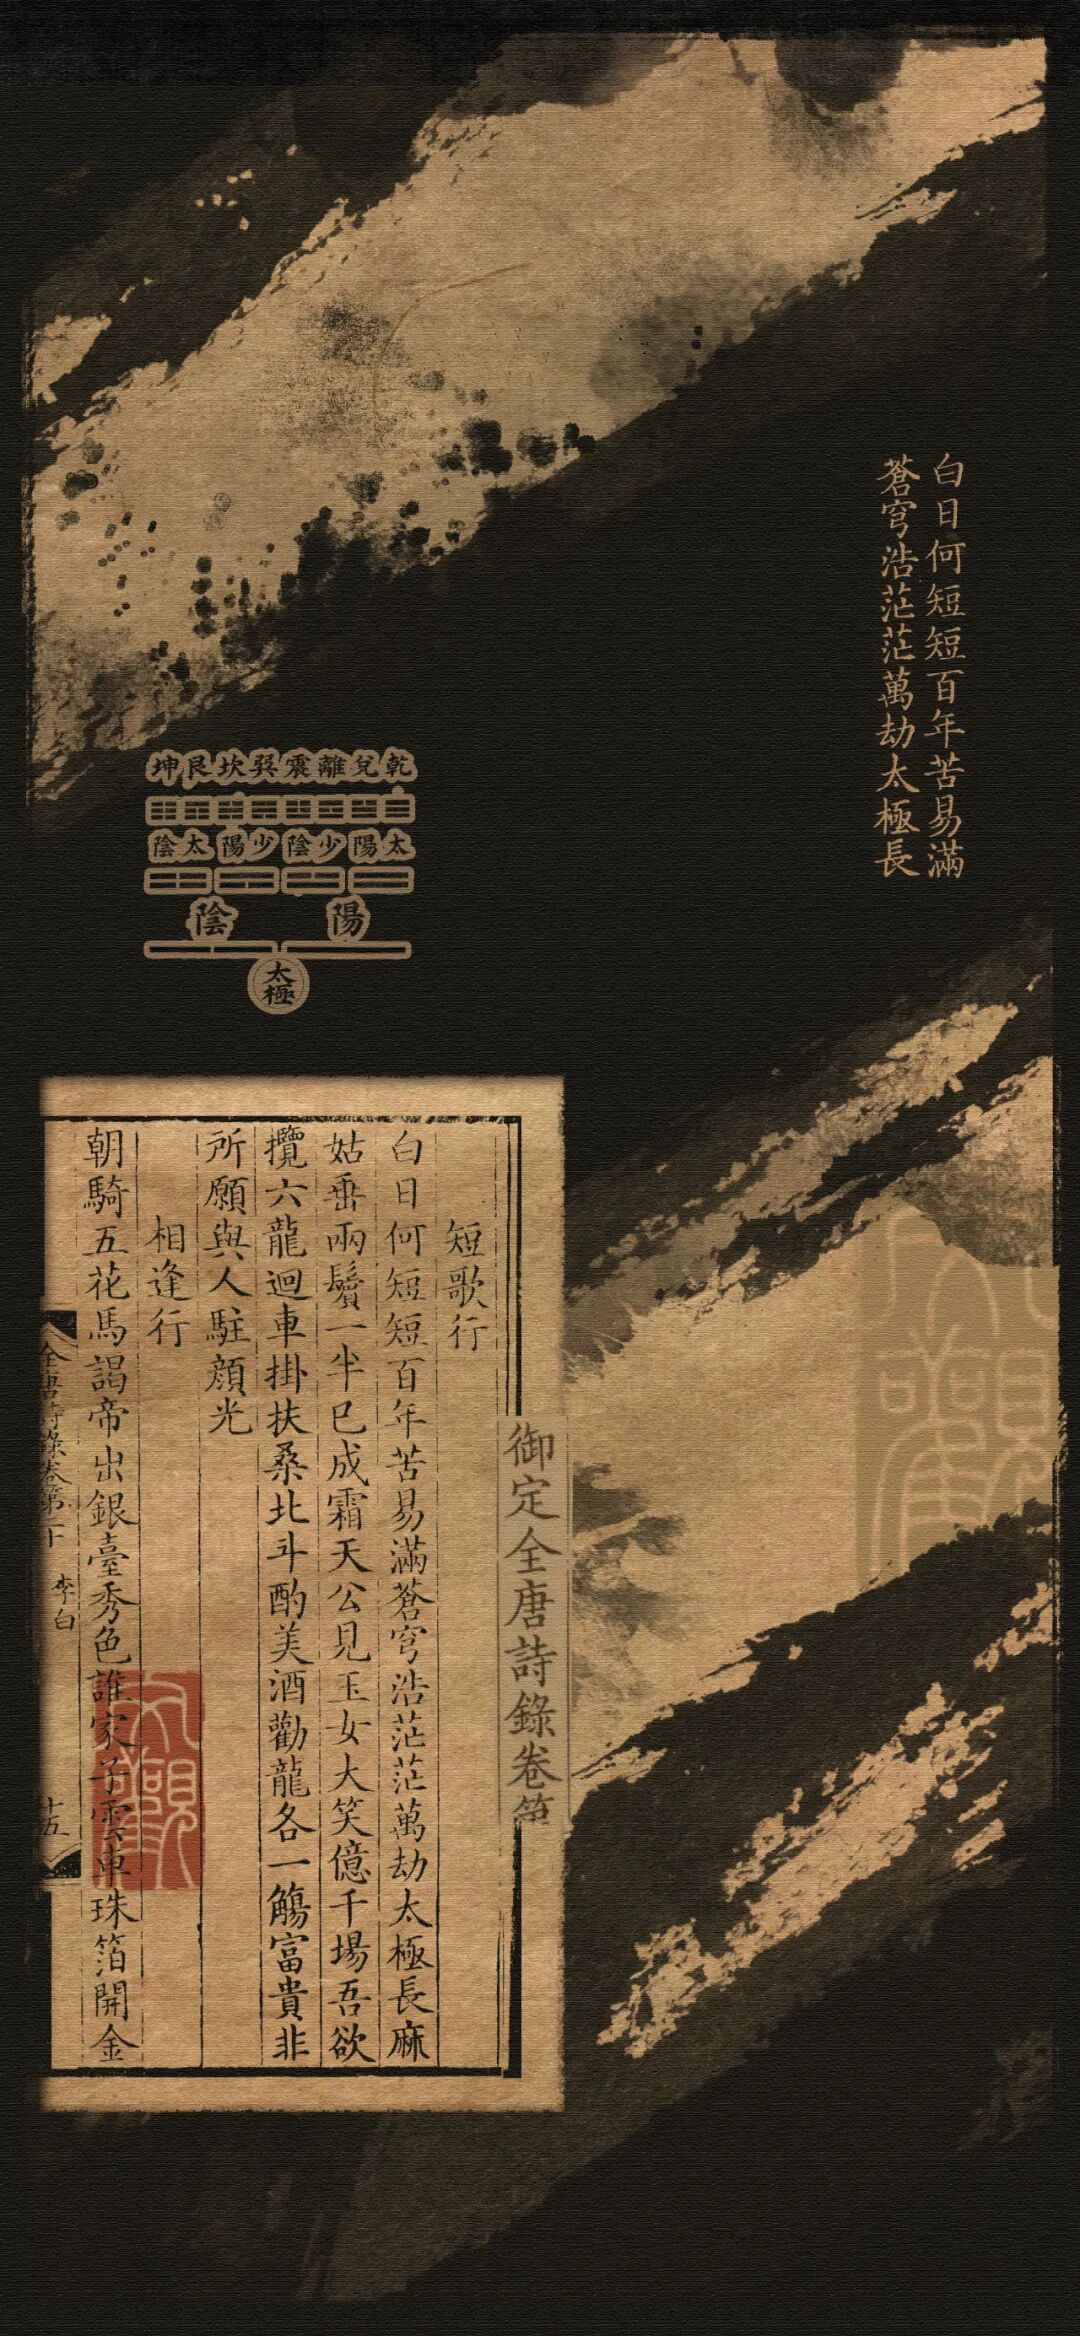 白日何短短百年苦易滿
蒼穹浩茫茫萬劫太極長
乾兌離震巽坎艮坤
太陽少陰少陽太陰
陽陰
太極
御定全唐詩錄卷
短歌行
白日何短短百年苦易滿蒼穹浩茫茫萬劫太極長麻
姑垂兩鬢一半已成霜天公見玉女大笑億千場吾欲
攬六龍迴車掛扶桑北斗酌美酒勸龍各一觴富貴非
所願與人駐顏光
相逢行
朝騎五花馬謁帝出銀臺秀色誰家子雲車珠箔開金
全唐詩錄卷第二十
李白
十五